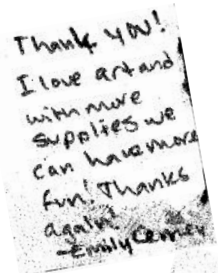 Thank you!
I love art and
with more
supplies we
can have more
fun! Thanks
again!
-Emily